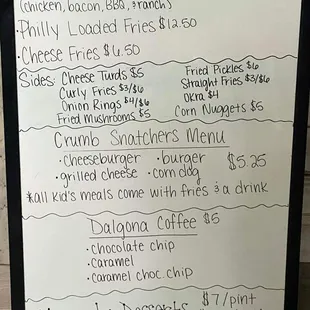 (chicken, bacon, BBQ, & ranch)
Philly Loaded Fries $12.50
· Cheese Fries $6.50
Sides: Cheese Turds $5
Fried Pickles $6
Curly Fries $3/$6
Straight Fries $3/$6
Onion Rings $4/$6
Okra $4
Fried Mushrooms $5
Corn Nuggets $5
Crumb Snatchers Menu
· cheeseburger · burger
· grilled cheese · corn dog
$5.25
*all kid's meals come with fries & a drink
Dalgona Coffee $5
· chocolate chip
· caramel
· caramel choc. chip
Desserts $7/pint